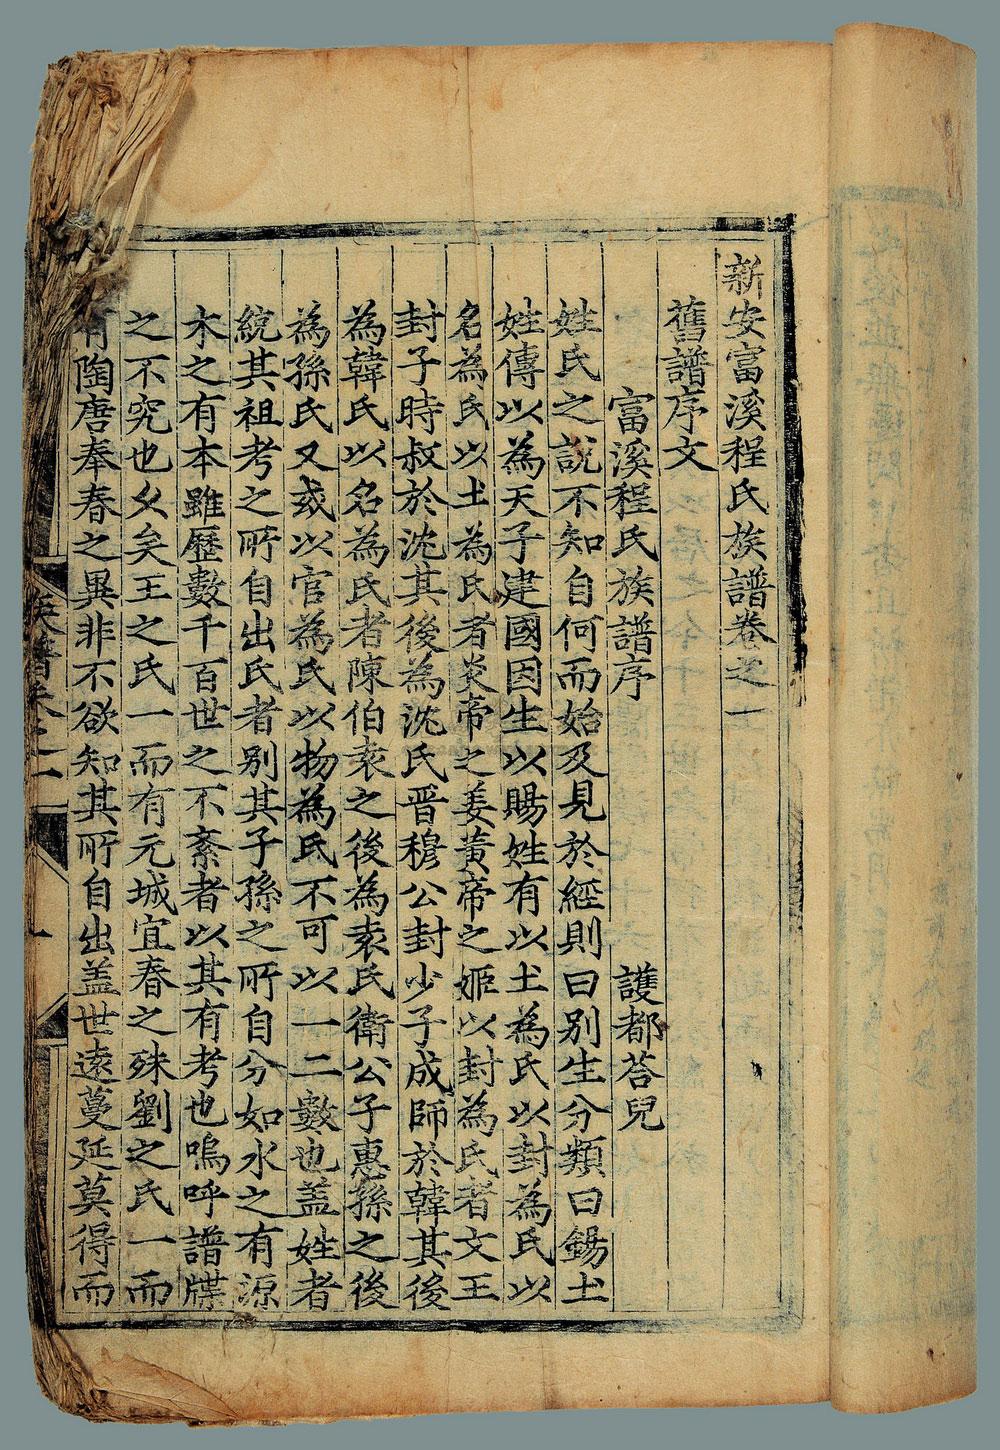 新安富溪程氏族譜卷之一
舊譜序文
富溪程氏族譜序 護都荅兒
姓氏之說不知自何而始及見於經則曰别生分類曰錫土
姓傳以為天子建國因生以賜姓有以土為氏以封為氏以
名為氏以土為氏者炎帝之姜黄帝之姬以封為氏者文王
封子時叔於沈其後為沈氏晋穆公封少子成師於韓其後
為韓氏以名為氏者陳伯袁之後為袁氏衛公子惠孫之後
為孫氏又或以官為氏以物為氏不可以一二數也盖姓者
統其祖考之所自出氏者别其子孫之所自分如水之有源
木之有本雖歷數千百世之不紊者以其有考也嗚呼譜牒
之不究也乆矣王之氏一而有元城宜春之殊劉之氏一而
有陶唐奉春之異非不欲知其所自出盖世逺蔓延莫得而